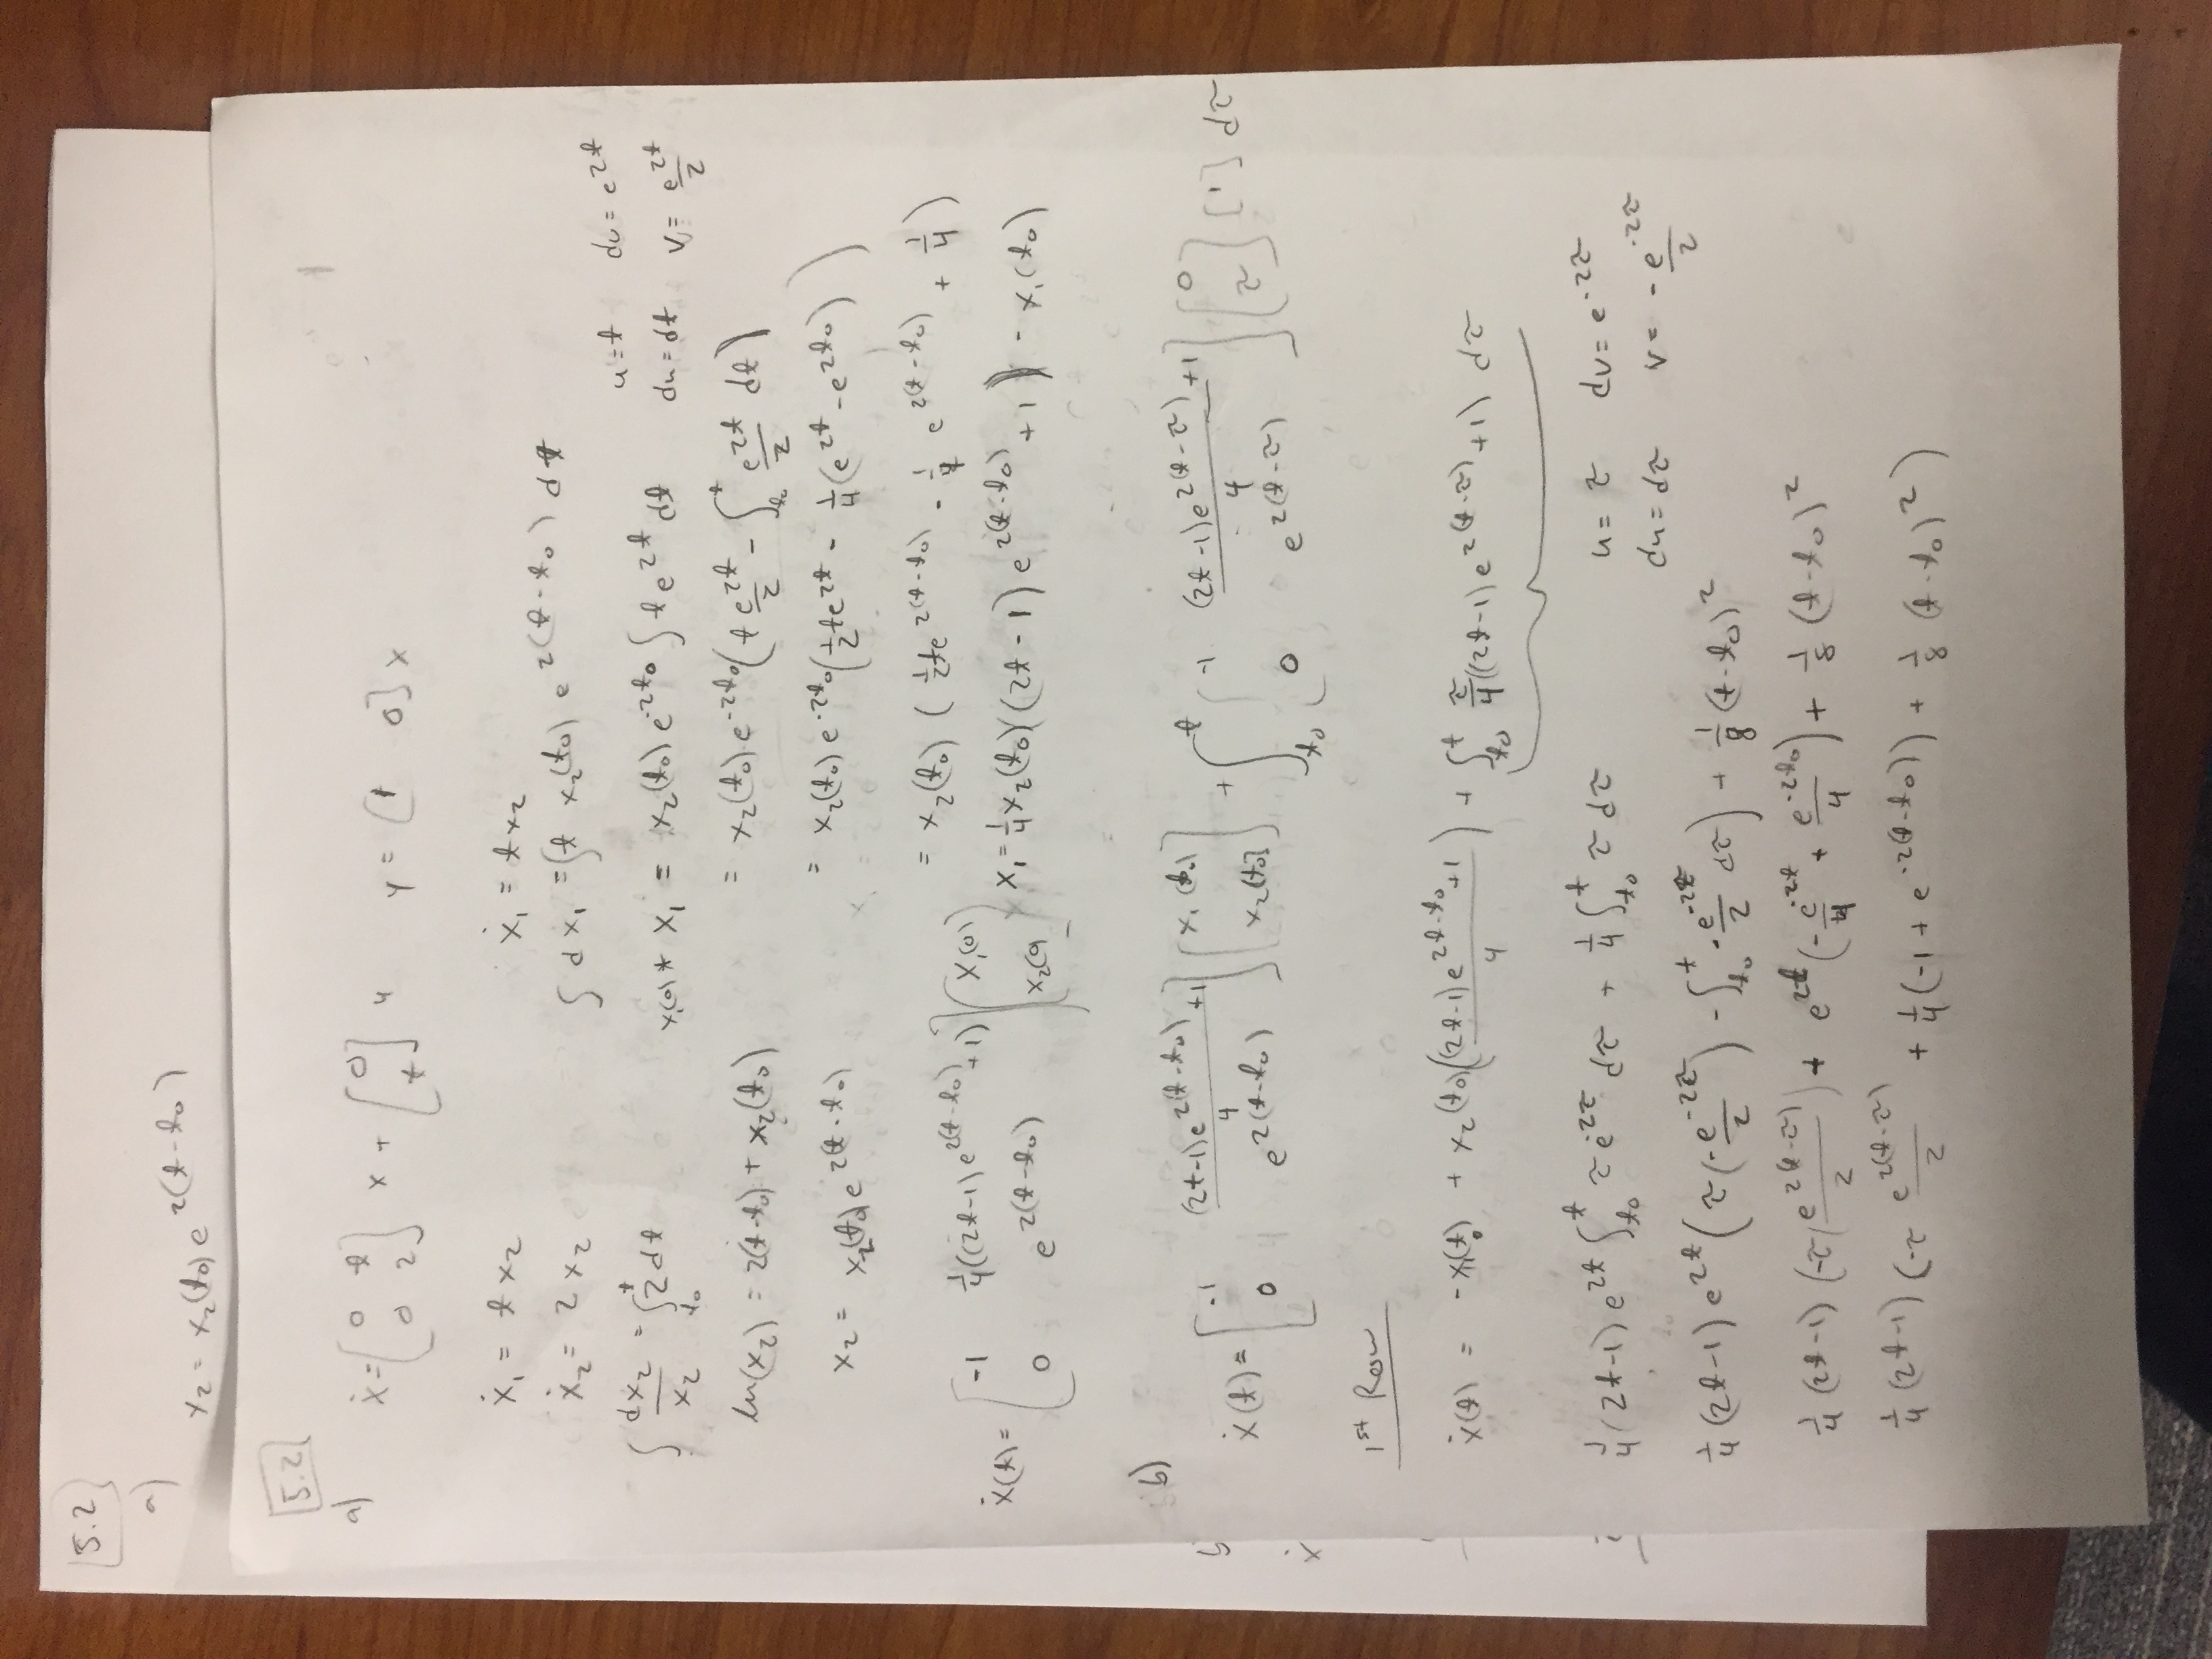 5.2
a)
x₂ = x₂(t₀) e^{2(t-t₀)}
5.2
a)
ẋ = [0 t; 0 2] x + [0; t] u    y = [1 0] x
ẋ₁ = t x₂    ẋ₁ = t x₂
ẋ₂ = 2 x₂    ∫ dx₁ = ∫ t x₂(t₀) e^{2(t-t₀)} dt
u = t    dv = e^{2t}
∫ dx₂/x₂ = ∫_{t₀}^{t} 2 dt    x₁(0) + x₁ = x₂(t₀) e^{-2t₀} ∫ t e^{2t} dt    du = dt    v = e^{2t}/2
ln(x₂) = 2(t-t₀) + x₂(t₀)    = x₂(t₀) e^{-2t₀} (t e^{2t}/2 - ∫_{t₀}^{t} e^{2t}/2 dt)
x₂ = x₂(t₀) e^{2(t-t₀)}    = x₂(t₀) e^{-2t₀} (1/2 t e^{2t} - 1/4 (e^{2t} - e^{2t₀}))
= x₂(t₀) (1/2 t e^{2(t-t₀)} - 1/4 e^{2(t-t₀)} + 1/4)
ẋ(t) = [-1 1/4((2t-1) e^{2(t-t₀)} + 1); 0 e^{2(t-t₀)}] [x₁(0); x₂(0)]    x₁ = 1/4 x₂(t₀) ((2t-1) e^{2(t-t₀)} + 1) - x₁(t₀)
b)
ẋ(t) = [-1 ((2t-1) e^{2(t-t₀)} + 1)/4; 0 e^{2(t-t₀)}] [x₁(t₀); x₂(t₀)] + ∫_{t₀}^{t} [-1 ((2t-1) e^{2(t-τ)} + 1)/4; 0 e^{2(t-τ)}] [0; τ] [1] dτ
1st Row
ẋ(t) = -x₁(t₀) + x₂(t₀) (((2t-1) e^{2t-t₀} + 1)/4) + ∫_{t₀}^{t} τ/4 ((2t-1) e^{2(t-τ)} + 1) dτ
1/4 (2t-1) e^{2t} ∫_{t₀}^{t} τ e^{-2τ} dτ + 1/4 ∫_{t₀}^{t} τ dτ    u = τ    dv = e^{-2τ}
du = dτ    v = -e^{-2τ}/2
1/4 (2t-1) e^{2t} (τ(-e^{-2τ}/2) - ∫_{t₀}^{t} -e^{-2τ}/2 dτ) + 1/8 (t-t₀)²
1/4 (2t-1) (-τ(e^{2(t-τ)}/2) + e^{2t} (-e^{-2t}/4 + e^{-2t₀}/4) + 1/8 (t-t₀)²
1/4 (2t-1) (-τ e^{2(t-τ)}/2 + 1/4 (-1 + e^{-2(t-t₀)}) + 1/8 (t-t₀)²)